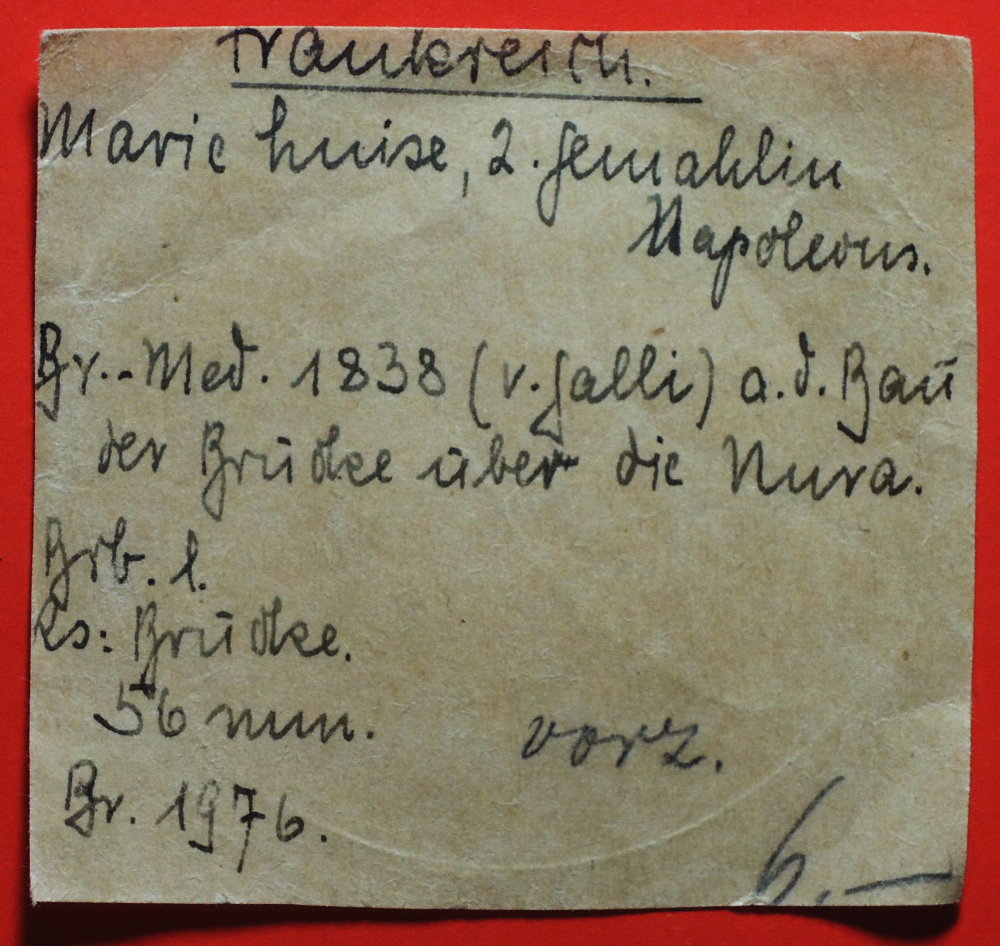 Frankreich.
Marie Luise, 2. Gemahlin
Napoleons.
Br.-Med. 1838 (v. Galli) a. d. Bau
der Brücke über die Nura.
Brb. l.
Rs: Brücke.
56 mm.
vorz.
Br. 1976.
6.—